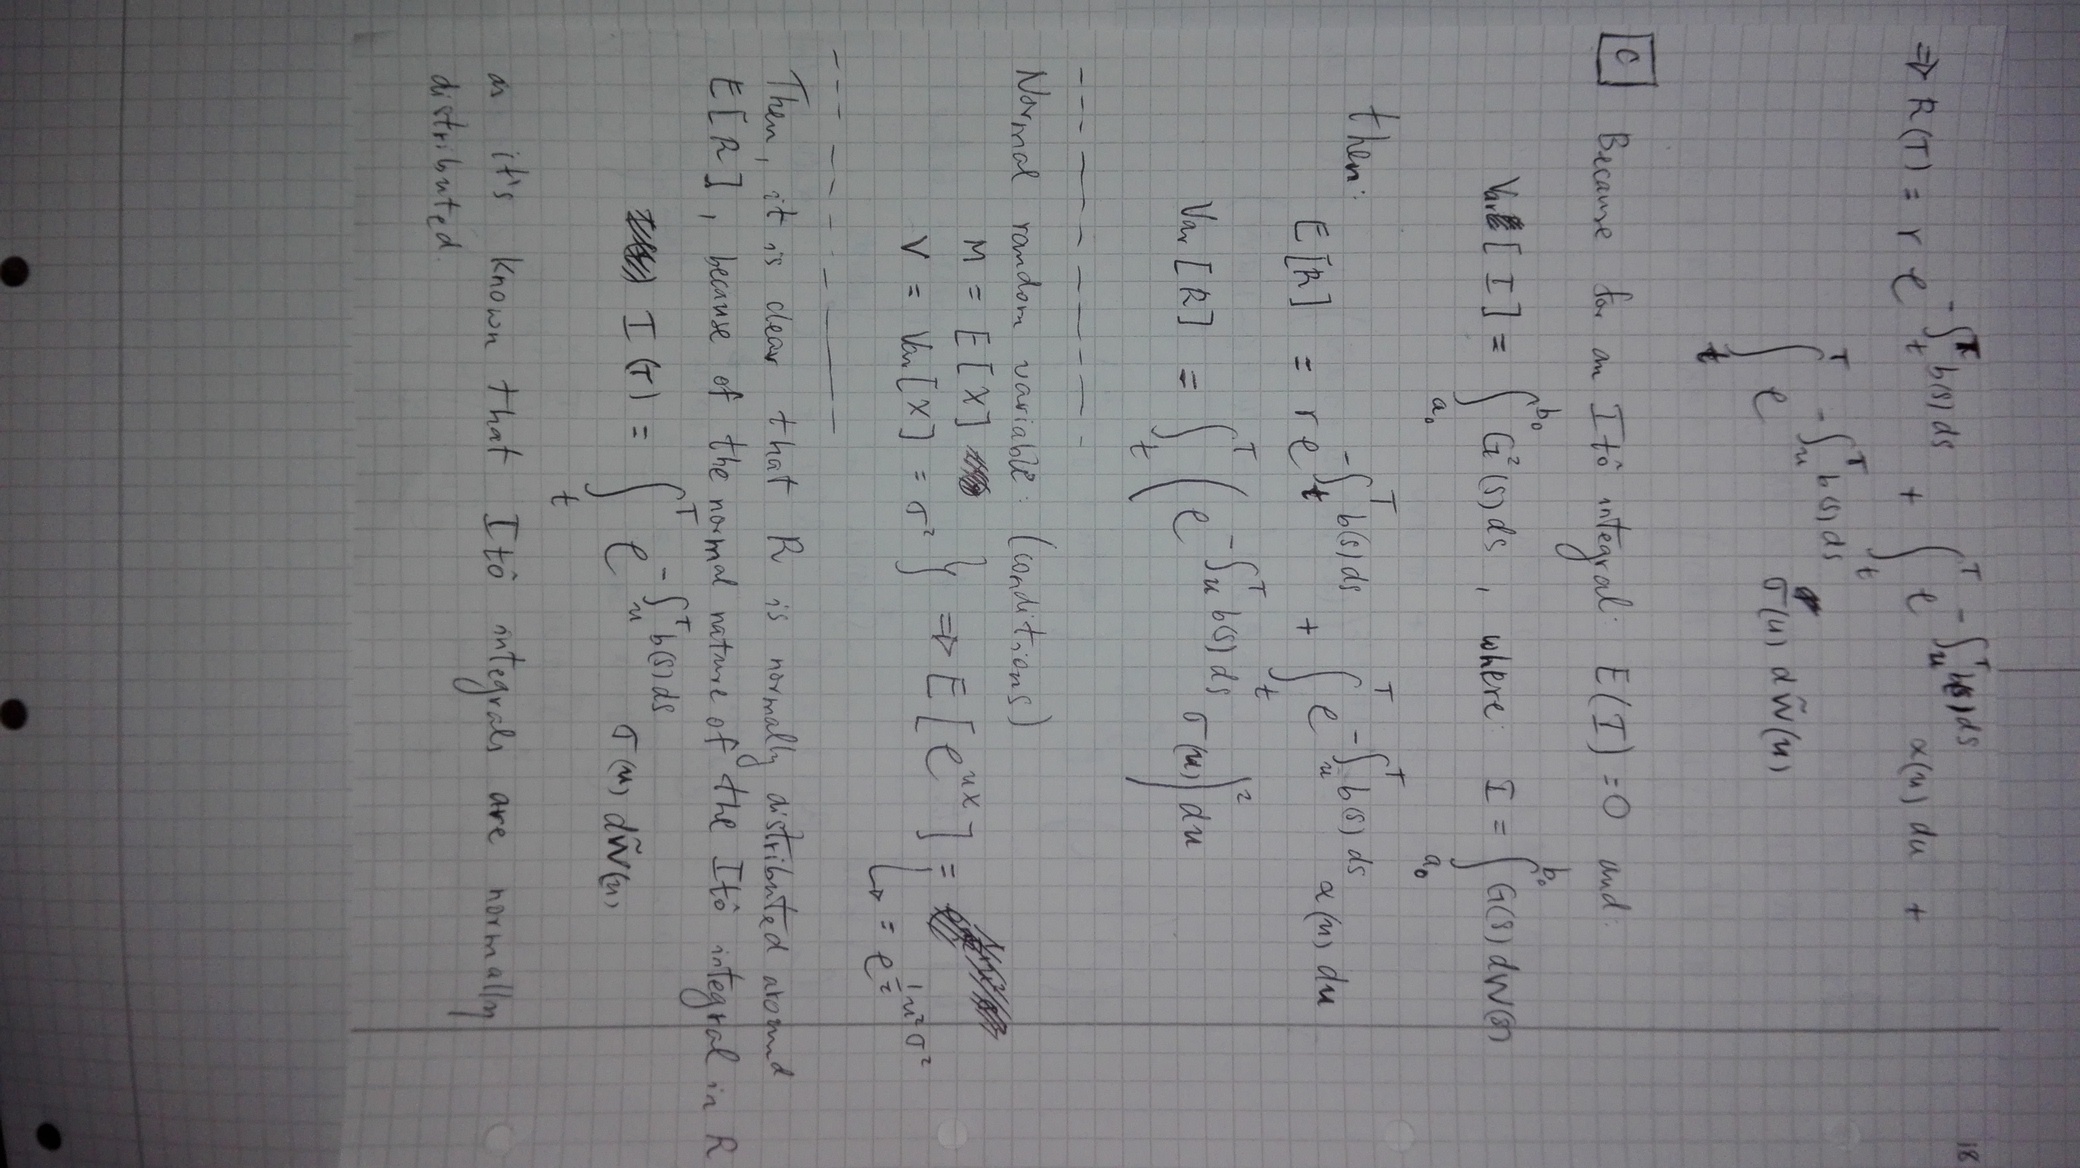 18
⇒ R(T) = r e^{-∫_t^T b(s) ds} + ∫_t^T e^{-∫_u^T b(s) ds} α(u) du +
∫_t^T e^{-∫_u^T b(s) ds} σ(u) dW̃(u)
C Because for an Itô integral: E(I) = 0 and:
Var[I] = ∫_{a_0}^{b_0} G²(s) ds , where: I = ∫_{a_0}^{b_0} G(s) dW(s)
then:
E[R] = r e^{-∫_t^T b(s) ds} + ∫_t^T e^{-∫_u^T b(s) ds} α(u) du
Var[R] = ∫_t^T ( e^{-∫_u^T b(s) ds} σ(u) )² du
Normal random variable: (conditions)
M = E[X]
V = Var[X] = σ² } ⇒ E[e^{uX}] =
↳ = e^{½u²σ²}
Then, it is clear that R is normally distributed around
E[R], because of the normal nature of the Itô integral in R
I(T) = ∫_t^T e^{-∫_u^T b(s) ds} σ(u) dW̃(u)
as it's known that Itô integrals are normally
distributed.